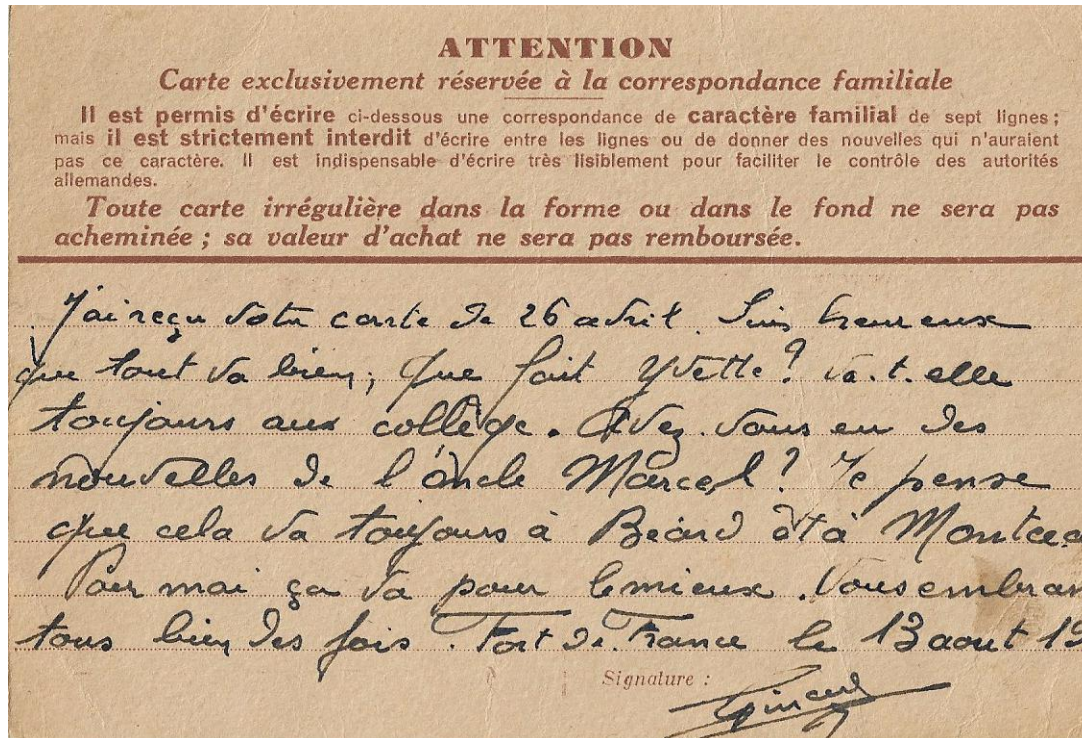 ATTENTION
Carte exclusivement réservée à la correspondance familiale
Il est permis d'écrire ci-dessous une correspondance de caractère familial de sept lignes;
mais il est strictement interdit d'écrire entre les lignes ou de donner des nouvelles qui n'auraient
pas ce caractère. Il est indispensable d'écrire très lisiblement pour faciliter le contrôle des autorités
allemandes.
Toute carte irrégulière dans la forme ou dans le fond ne sera pas
acheminée; sa valeur d'achat ne sera pas remboursée.
J'ai reçu votre carte de 26 avril. Suis heureux
que tout va bien, que fait Yvette? va.t.elle
toujours aux collège. Avez.vous eu des
nouvelles de l'oncle Marcel? Je pense
que cela va toujours à Béard et à
Pour moi ça va pour le mieux. Vous
tous bien des fois. Fort de France le 13 aout 19
Signature :